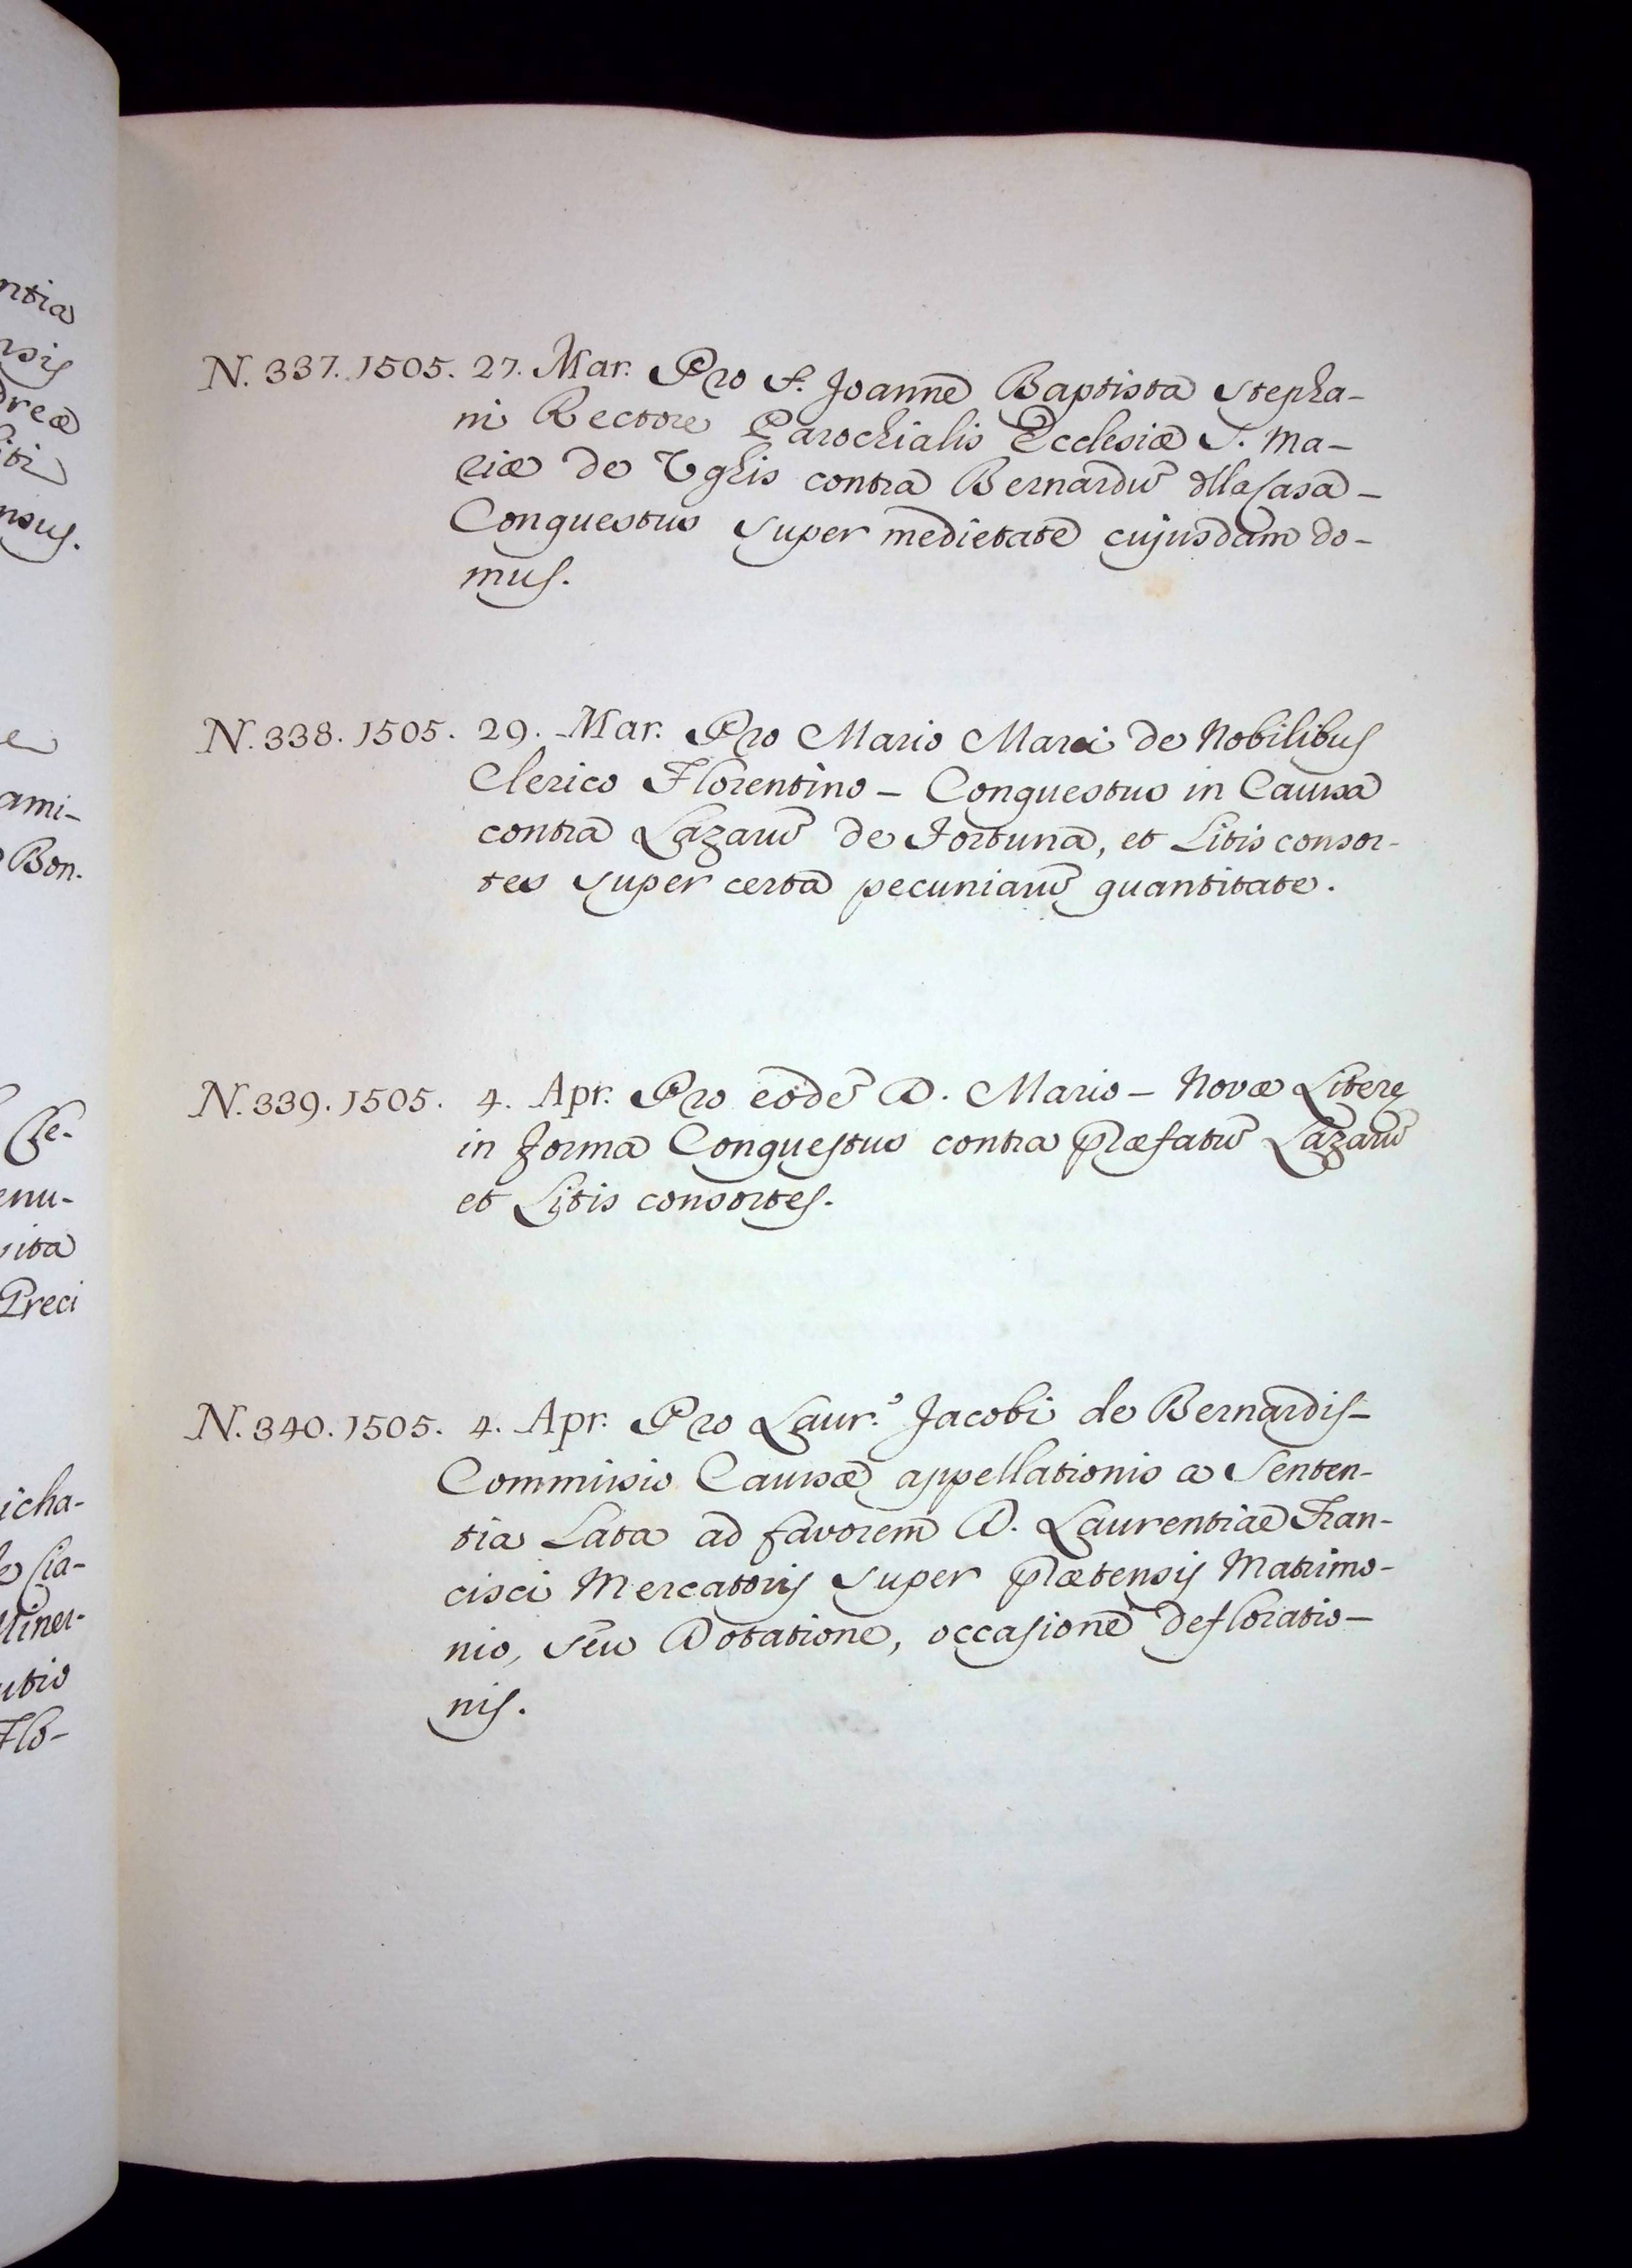 ntia
nsis
dreæ
liti
nsus.
e
ami-
Bon.
Che-
enu-
sita
Preci
icha-
lo Cia-
Miner-
utio
Flo-
N. 337. 1505. 27. Mar. Pro S. Joanne Baptista Stepha-
ni Rectore Parochialis Ecclesiæ S. Ma-
riæ de Ughis contra Bernardũ dllaCasa -
Conquestus super medietate cujusdam do-
mus.
N. 338. 1505. 29. Mar. Pro Mario Mari de Nobilibus
Clerico Florentino - Conquestus in Causa
contra Lazarũ de Fortuna, et Litis consor-
tes super certa pecuniarũ quantitate.
N. 339. 1505. 4. Apr. Pro eodẽ D. Mario - Novæ Literę
in forma Conquestus contra præfatũ Lazarũ
et Litis consortes.
N. 340. 1505. 4. Apr. Pro Laur.º Jacobi de Bernardis -
Commissio Causæ appellationis a Senten-
tia Lata ad favorem D. Laurentiæ Fran-
cisci Mercatoris super prætensis Matrimo-
nio, seu Dotatione, occasione defloratio-
nis.